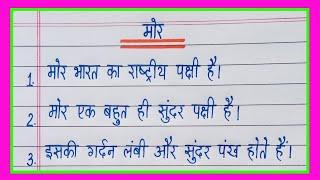 मोर
1. मोर भारत का राष्ट्रीय पक्षी है।
2. मोर एक बहुत ही सुंदर पक्षी है।
3. इसकी गर्दन लंबी और सुंदर पंख होते हैं।